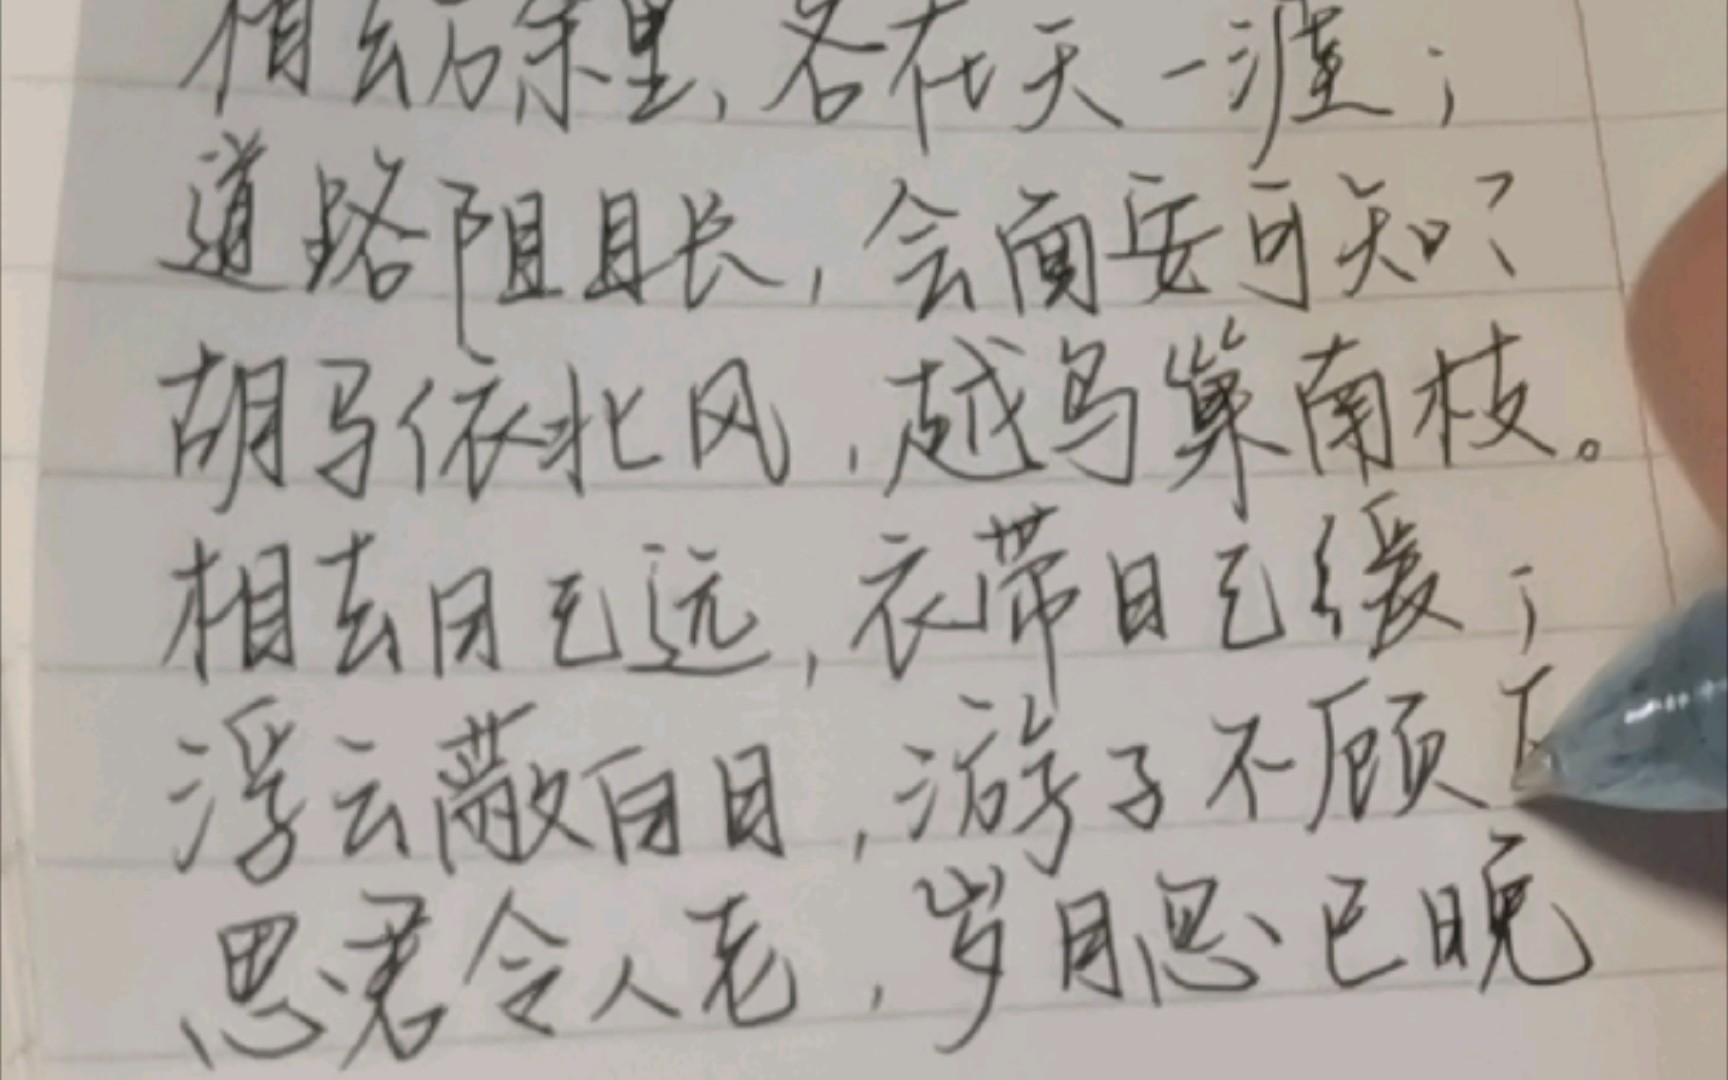 相去万余里，各在天一涯；
道路阻且长，会面安可知？
胡马依北风，越鸟巢南枝。
相去日已远，衣带日已缓；
浮云蔽白日，游子不顾
思君令人老，岁月忽已晚